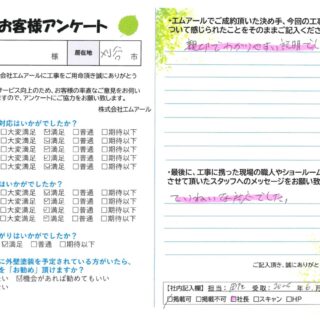 お客様アンケート
様
居住地
刈谷 市
株式会社エムアールに工事をご用命頂き誠にありがとう
サービス向上のため、お客様の率直なご意見をお伺い
ますので、アンケートにご協力をお願い致します。
株式会社エムアール
対応はいかがでしたか?
□大変満足 ☑満足 □普通 □期待以下
□大変満足 ☑満足 □普通 □期待以下
□大変満足 ☑満足 □普通 □期待以下
はいかがでしたか?
□大変満足 ☑満足 □普通 □期待以下
□大変満足 ☑満足 □普通 □期待以下
□大変満足 ☑満足 □普通 □期待以下
□大変満足 ☑満足 □普通 □期待以下
がりはいかがでしたか?
満足 ☑満足 □普通 □期待以下
に外壁塗装を予定されている方がいたら、
を「お勧め」頂けますか?
い ☑機会があれば勧めてもいい
ない
・エムアールでご成約頂いた決め手、今回の工事
ついて感じられたことをそのままご記入ください
親切でわかりやすい説明でし
・最後に、工事に携った現場の職人やショールーム
させて頂いたスタッフへのメッセージをお願い致
ていねいな方々でした。
ご記入頂き、誠にありがと
【社内記入欄】 担当: 受取: 年 6 月
□掲載可 □掲載不可 社長 □スキャン □HP